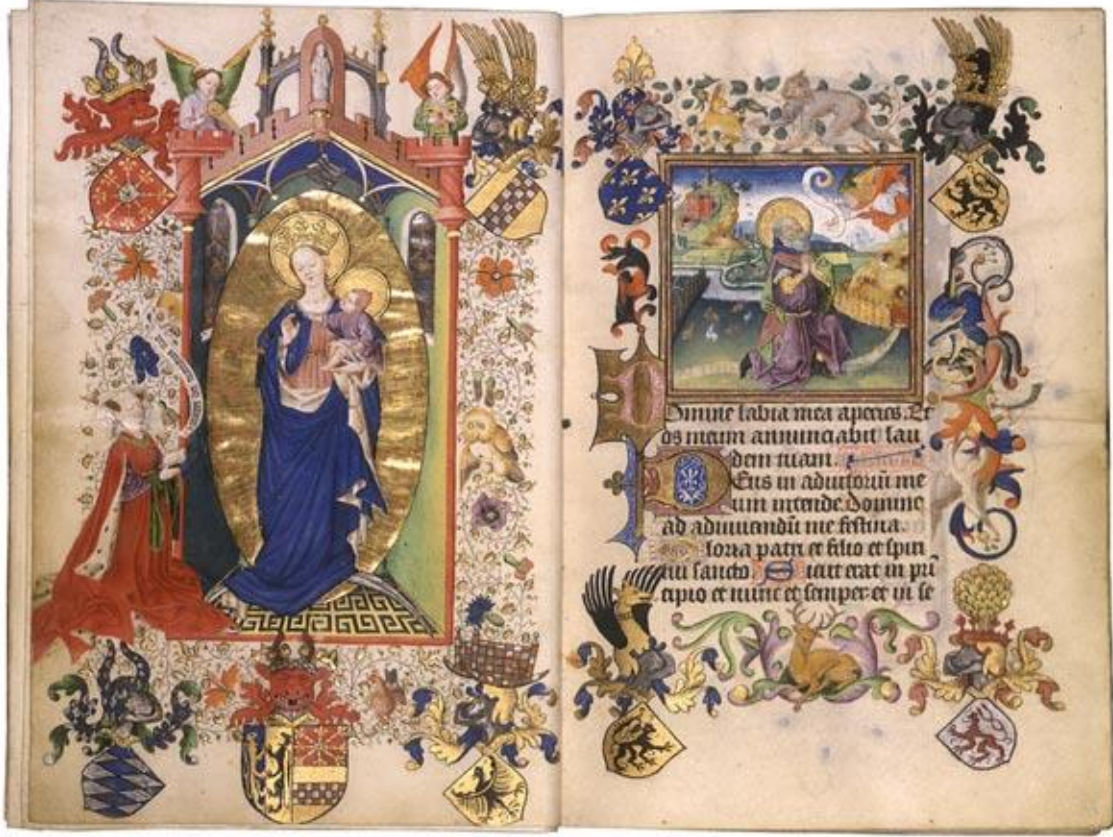 Domine labia mea aperies. Et
os meum annunciabit lau
dem tuam.
Deus in adiutoriū me
um intende Domine
ad adiuuandū me festina.
Gloria patri et filio et spiri
tui sancto. Sicut erat in prī
cipio et nunc et semper et in se